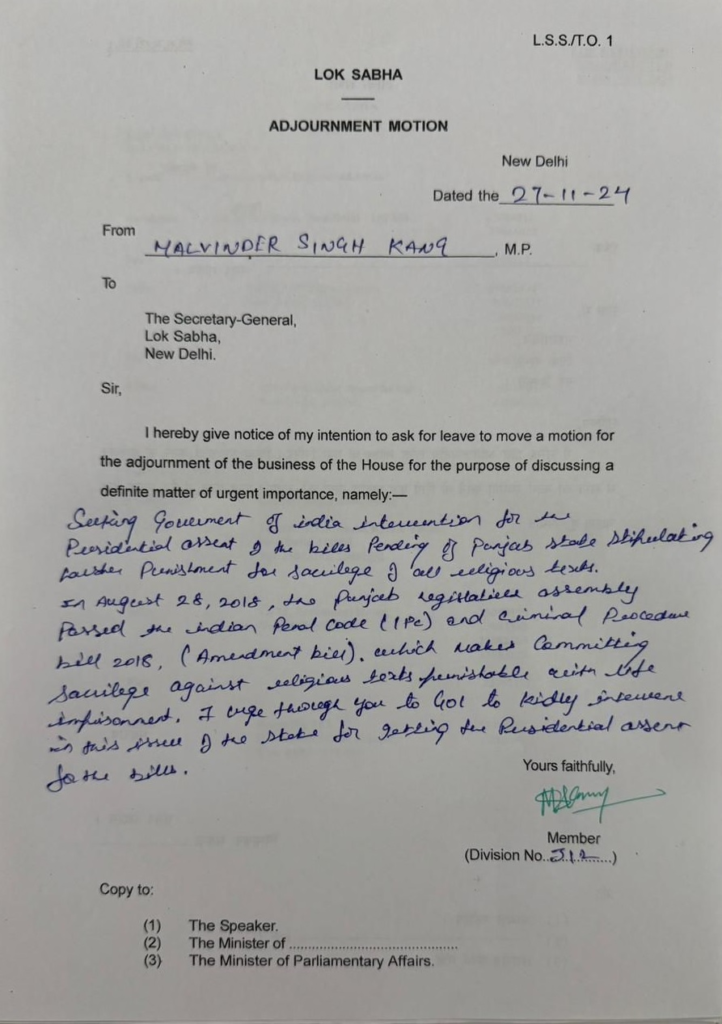 L.S.S./T.O. 1
LOK SABHA
ADJOURNMENT MOTION
New Delhi
Dated the 27-11-24
From
MALVINDER SINGH KANG, M.P.
To
The Secretary-General,
Lok Sabha,
New Delhi.
Sir,
I hereby give notice of my intention to ask for leave to move a motion for
the adjournment of the business of the House for the purpose of discussing a
definite matter of urgent importance, namely:—
Seeking Government of india intervention for the
Presidential assent of the bills Pending of Punjab state stipulating
Punishment for sacrilege of all religious texts.
In August 28, 2018, the Punjab legislative assembly
Passed the indian Penal Code (IPC) and Criminal Procedure
bill 2018, (Amendment bill), which makes Committing
Sacrilege against religious texts punishable with life
I urge through you to GoI to kidly intervene
in this issue of the state for getting the Presidential assent
for the bills.
Yours faithfully,
Member
(Division No.. ......)
Copy to:
(1) The Speaker.
(2) The Minister of ..........................................
(3) The Minister of Parliamentary Affairs.